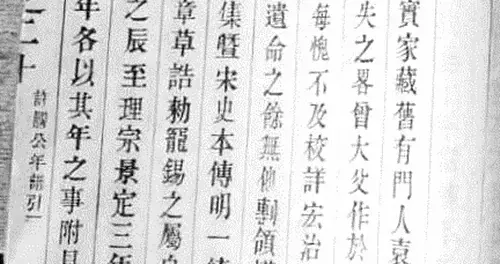 實家藏舊有門人袁
失之畧曾大父作於
每愧不及校詳宏治
遺命之餘無他
集暨宋史本傳明一統
章草誥勅寵錫之屬
之辰至理宗景定三年
年各以其年之事附見
許國公年譜引